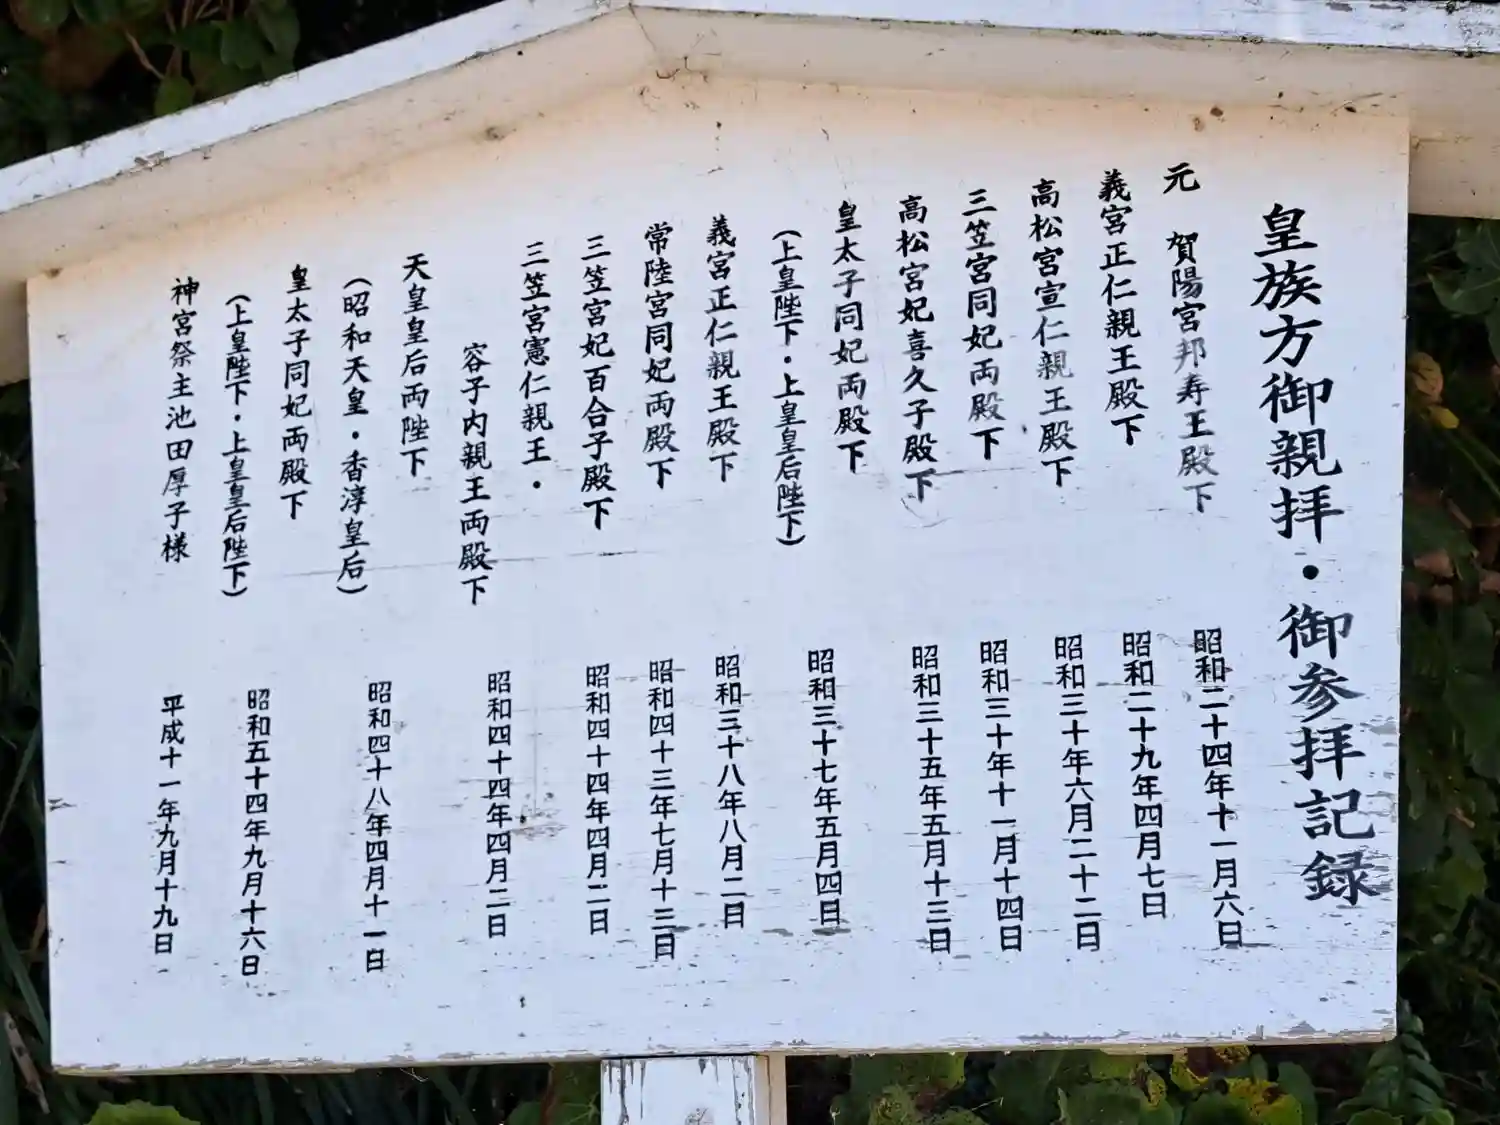 皇族方御親拝・御参拝記録
元 賀陽宮邦寿王殿下 昭和二十四年十一月六日
義宮正仁親王殿下 昭和二十九年四月七日
高松宮宣仁親王殿下 昭和三十年六月二十二日
三笠宮同妃両殿下 昭和三十年十一月十四日
高松宮妃喜久子殿下 昭和三十五年五月十三日
皇太子同妃両殿下 昭和三十七年五月四日
（上皇陛下・上皇皇后陛下）
義宮正仁親王殿下 昭和三十八年八月二日
常陸宮同妃両殿下 昭和四十三年七月十三日
三笠宮妃百合子殿下 昭和四十四年四月二日
三笠宮憲仁親王・
容子内親王両殿下 昭和四十四年四月二日
天皇皇后両陛下 昭和四十八年四月十一日
（昭和天皇・香淳皇后）
皇太子同妃両殿下 昭和五十四年九月十六日
（上皇陛下・上皇皇后陛下）
神宮祭主池田厚子様 平成十一年九月十九日